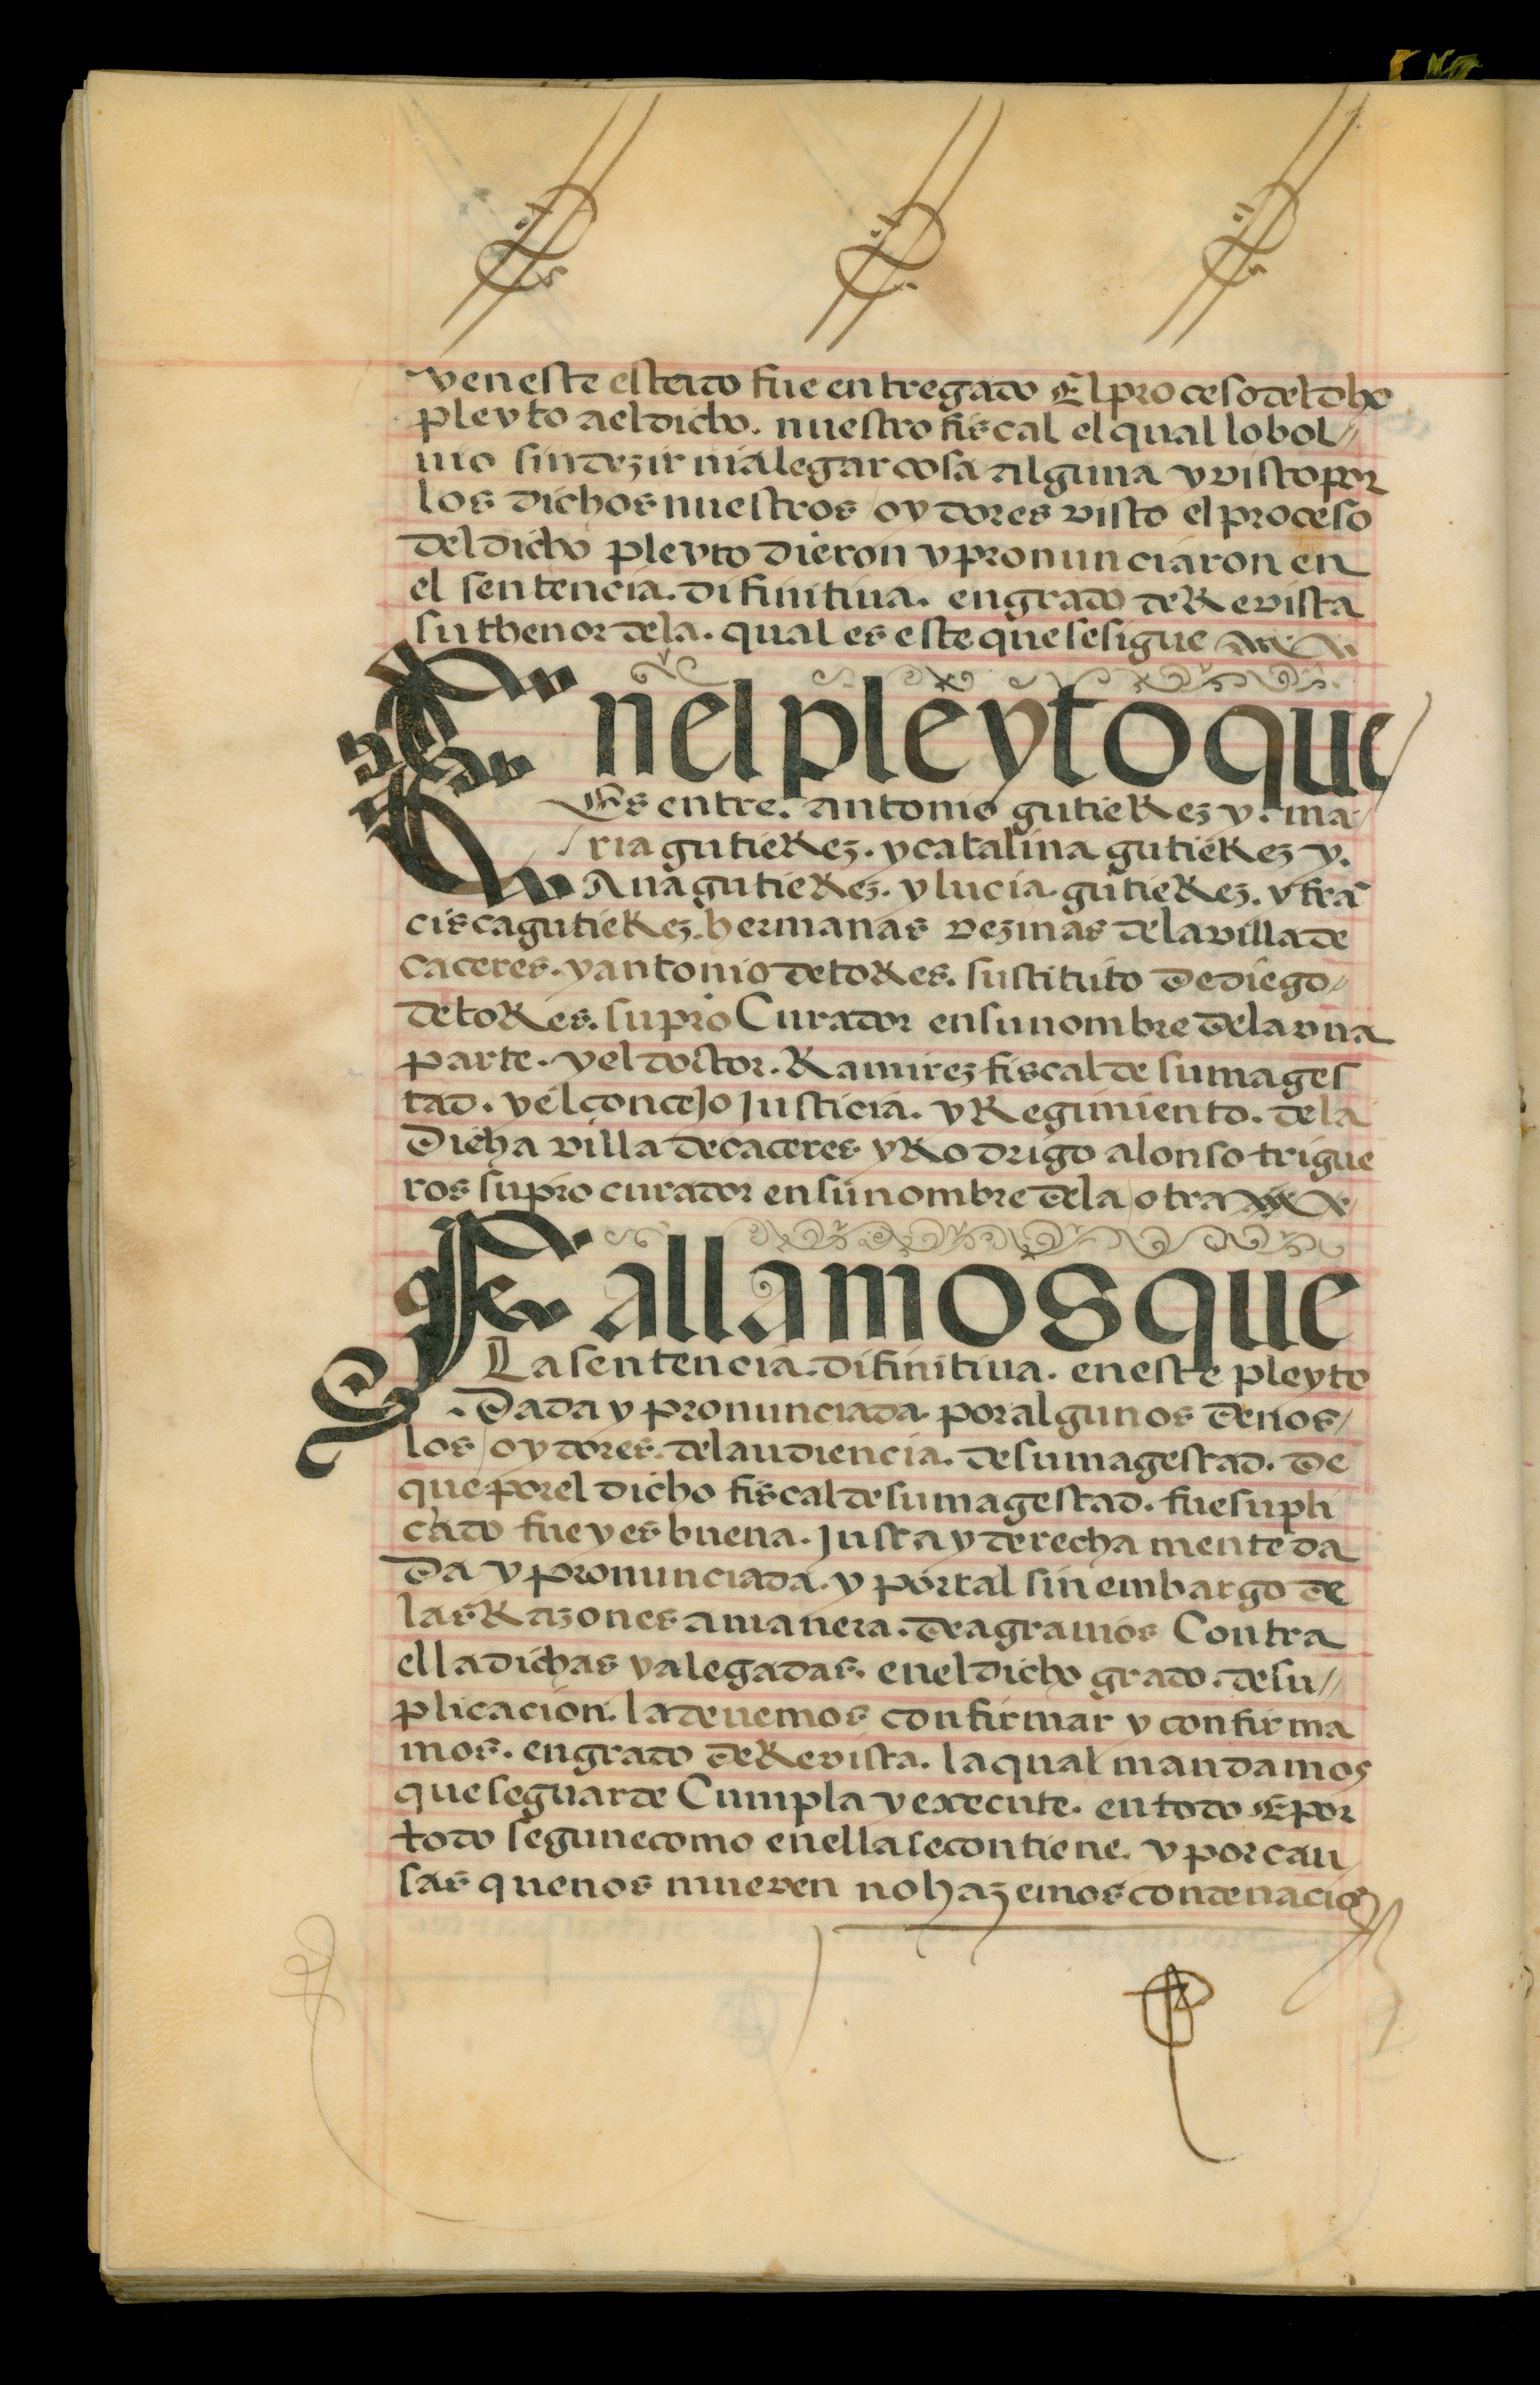 y en este estado fue entregado El proceso del dho
pleyto a el dicho. nuestro fiscal el qual lo bol//
uio sin dezir ni alegar cosa alguna y visto por
los dichos nuestros oydores visto el proceso
del dicho pleyto dieron y pronunciaron en
el sentencia. difinitiua. en grado de Revista
su thenor de la. qual es este que se sigue
En el pleyto que
Es entre. antonio gutieRez y. ma/
ria gutieRez. y catalina gutieRez y.
Ana gutieRez. y lucia gutieRez. y frã
cisca gutieRez. hermanas vezinas de la villa de
caceres. y antonio de toRes. sustituto de diego/
de toRes. su pro Curador en su nombre de la vna
parte. y el doctor. Ramirez fiscal de su mages
tad. y el concejo Justicia. y Regimiento. de la
Dicha villa de caceres y Rodrigo alonso trigue
ros su procurador en su nombre de la otra
Fallamos que
La sentencia. difinitiua. en este pleyto
. Dada y pronunciada por algunos de nos/
los oydores. del audiencia. de su magestad. De
que por el dicho fiscal de su magestad. fue supli
cado fue y es buena. Justa y derecha mente da
Da y pronunciada. y por tal sin embargo de
las Razones a manera. de agrauios Contra
ella dichas y alegadas. en el dicho grado. de su//
plicacion. la deuemos confirmar y confirma
mos. en grado de Revista. la qual mandamos
que se guarde Cumpla y execute. en todo E por
todo segun e como en ella se contiene. y por cau
sas que nos mueven no hazemos condenacion